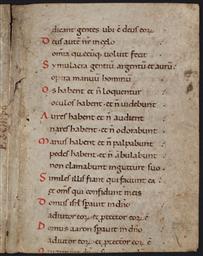 dicant gentes ubi ē deus eoꝝ
Deus autē nr̄ in celo
omia quecūq; voluit fecit
Simulacra gentiū argentū et aurū
opera manuū hominū
Os habent et ñ loquentur
oculos habent et ñ videbunt
Aures habent et ñ audient
nares habent et ñ odorabunt
Manus habent et ñ palpabunt
pedes habent et ñ ābulabunt
non clamabunt in gutture suo
Similes illis fiant qui faciunt ea
et om̄s qui confidunt in eis
Domus isrl sperauit in dn̄o
adiutor eoꝝ et ptector eoꝝ ē
Domus aaron sperauit in dn̄o
adiutor eoꝝ et ptector eoꝝ ē